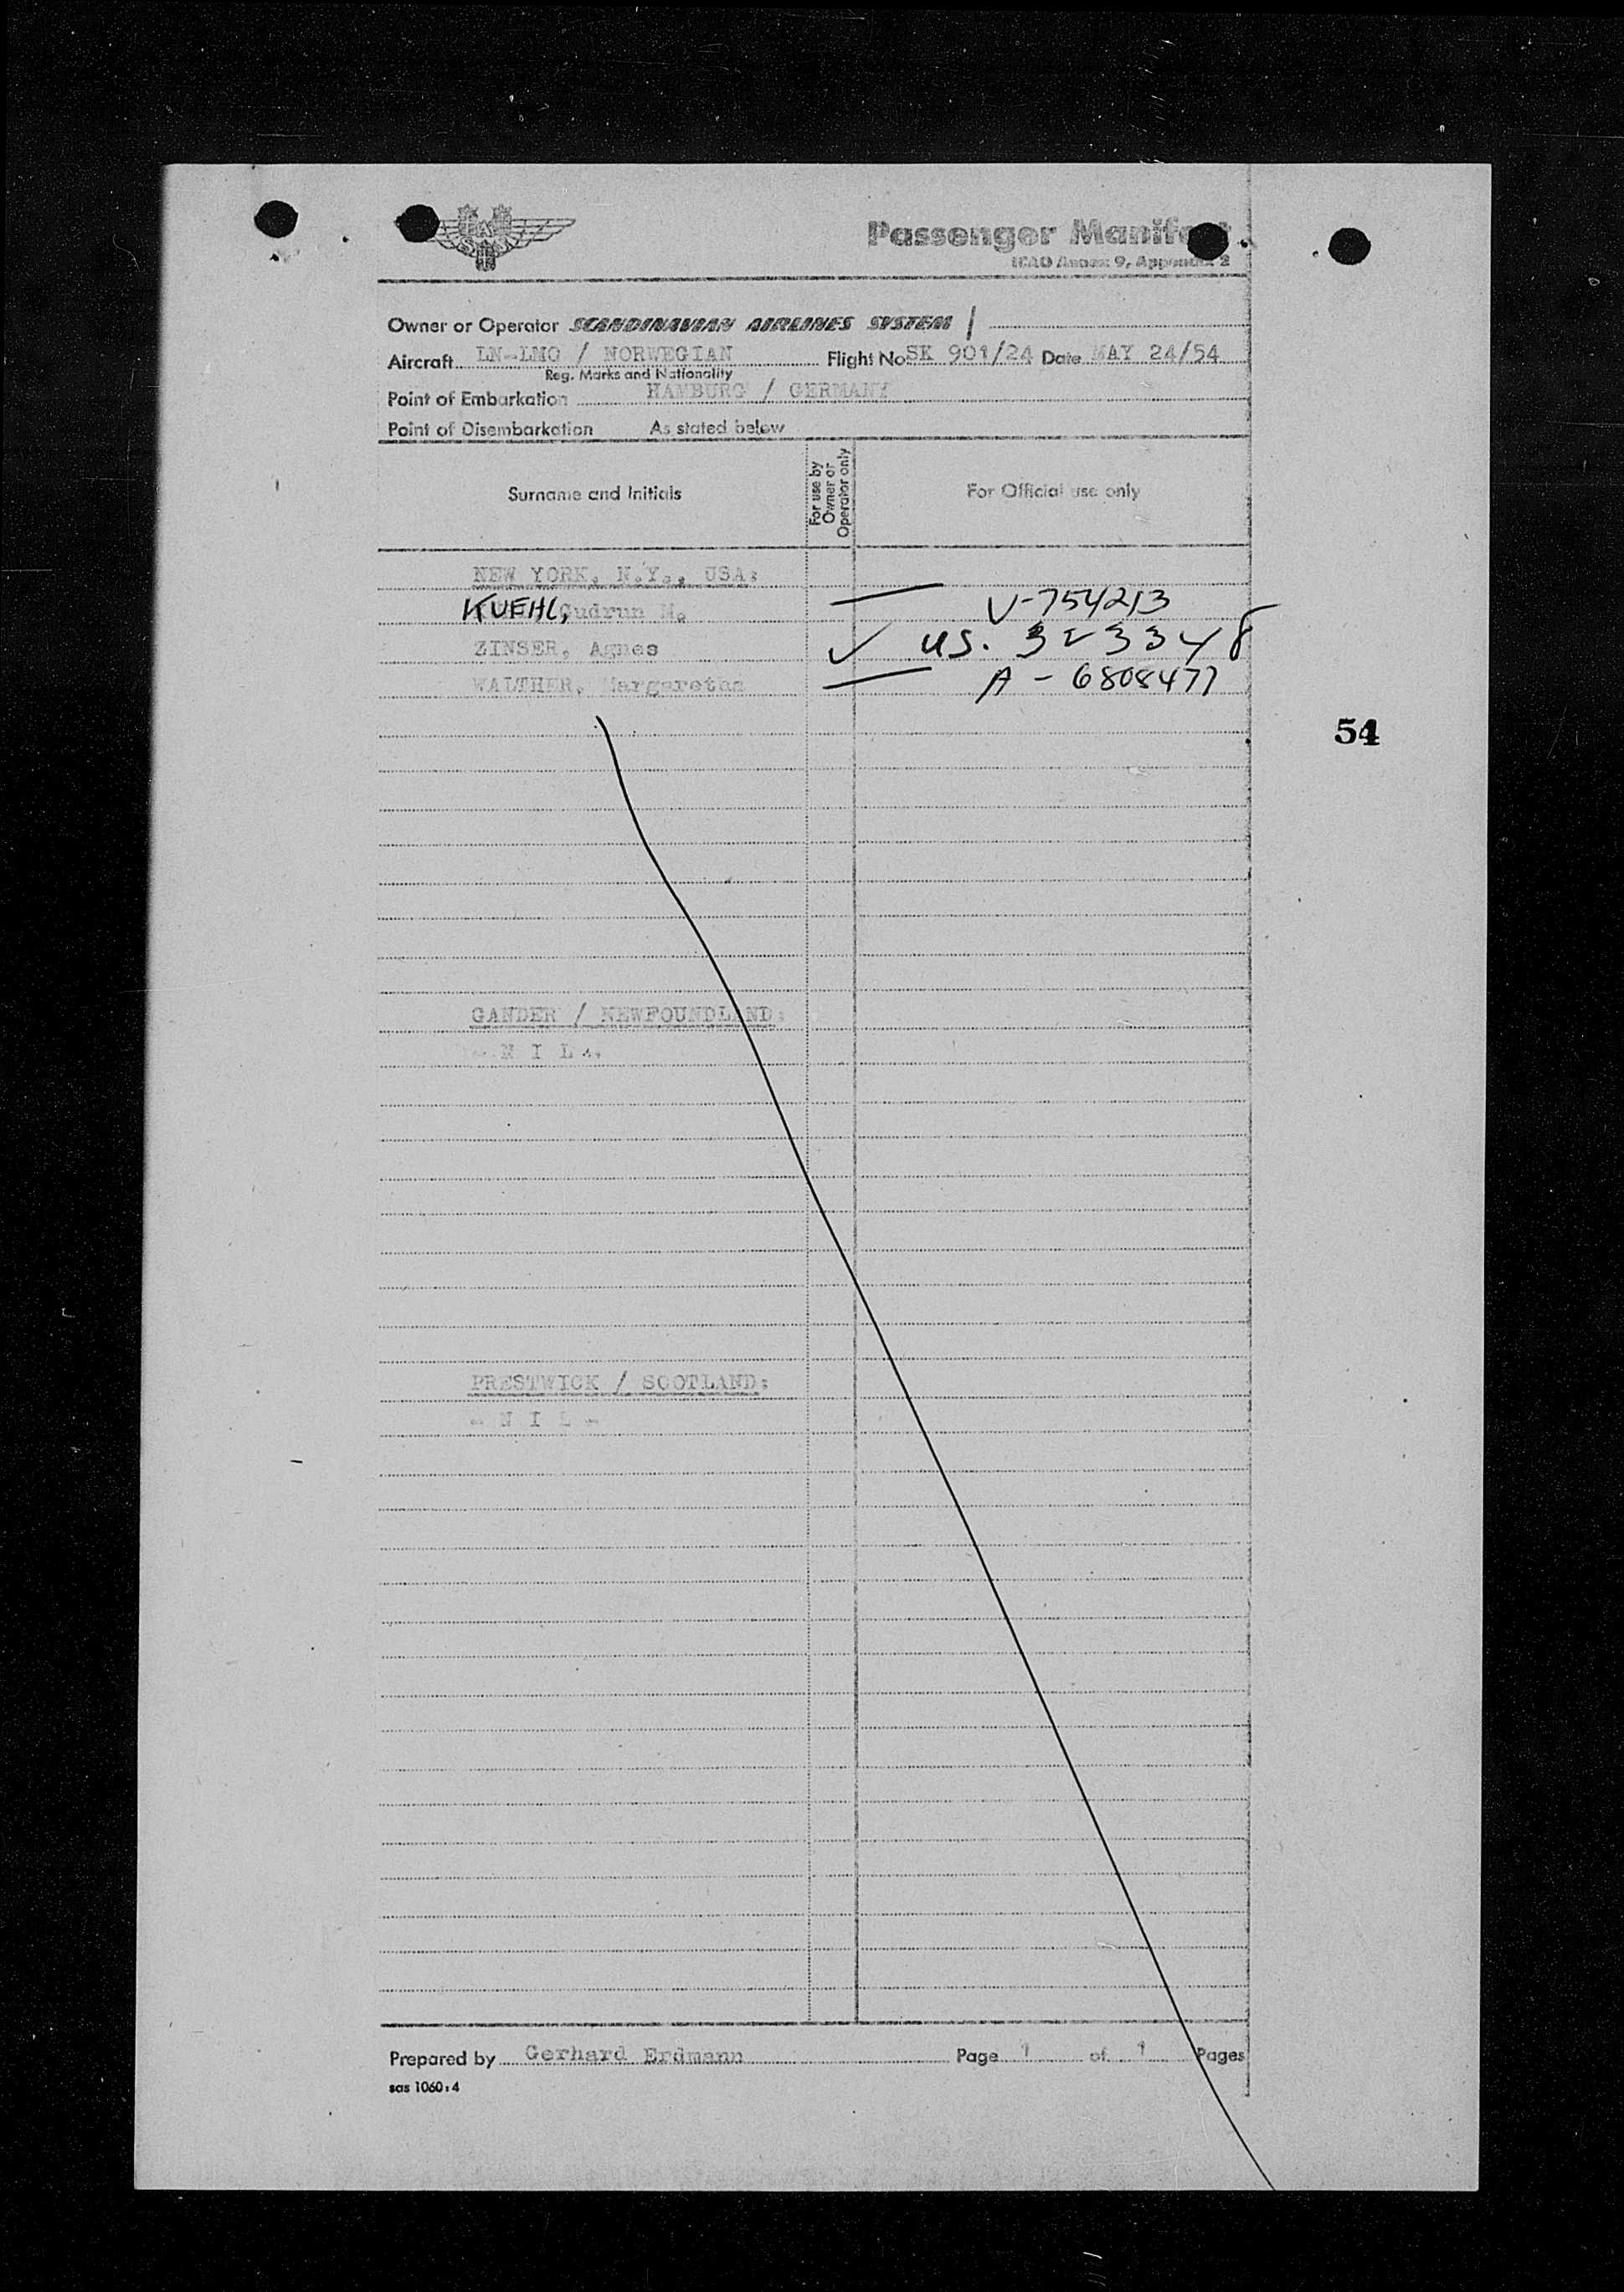 Passenger Manifest
ICAO Annex 9, Appendix 2
Owner or Operator SCANDINAVIAN AIRLINES SYSTEM /
Aircraft LN-LMO / NORWEGIAN Flight No. SK 901/24 Date MAY 24/54
Reg. Marks and Nationality
Point of Embarkation HAMBURG / GERMANY
Point of Disembarkation As stated below
Surname and Initials For use by Owner or Operator only For Official use only
NEW YORK, N.Y., USA:
KUEHL, Gudrun M. V-754213
ZINSER, Agnes ✓ US. 323348
WALTHER, Margaretha A-6808477
54
GANDER / NEWFOUNDLAND:
- N I L -
PRESTWICK / SCOTLAND:
- N I L -
Prepared by Gerhard Erdmann Page 1 of 1 Pages
sas 1060:4